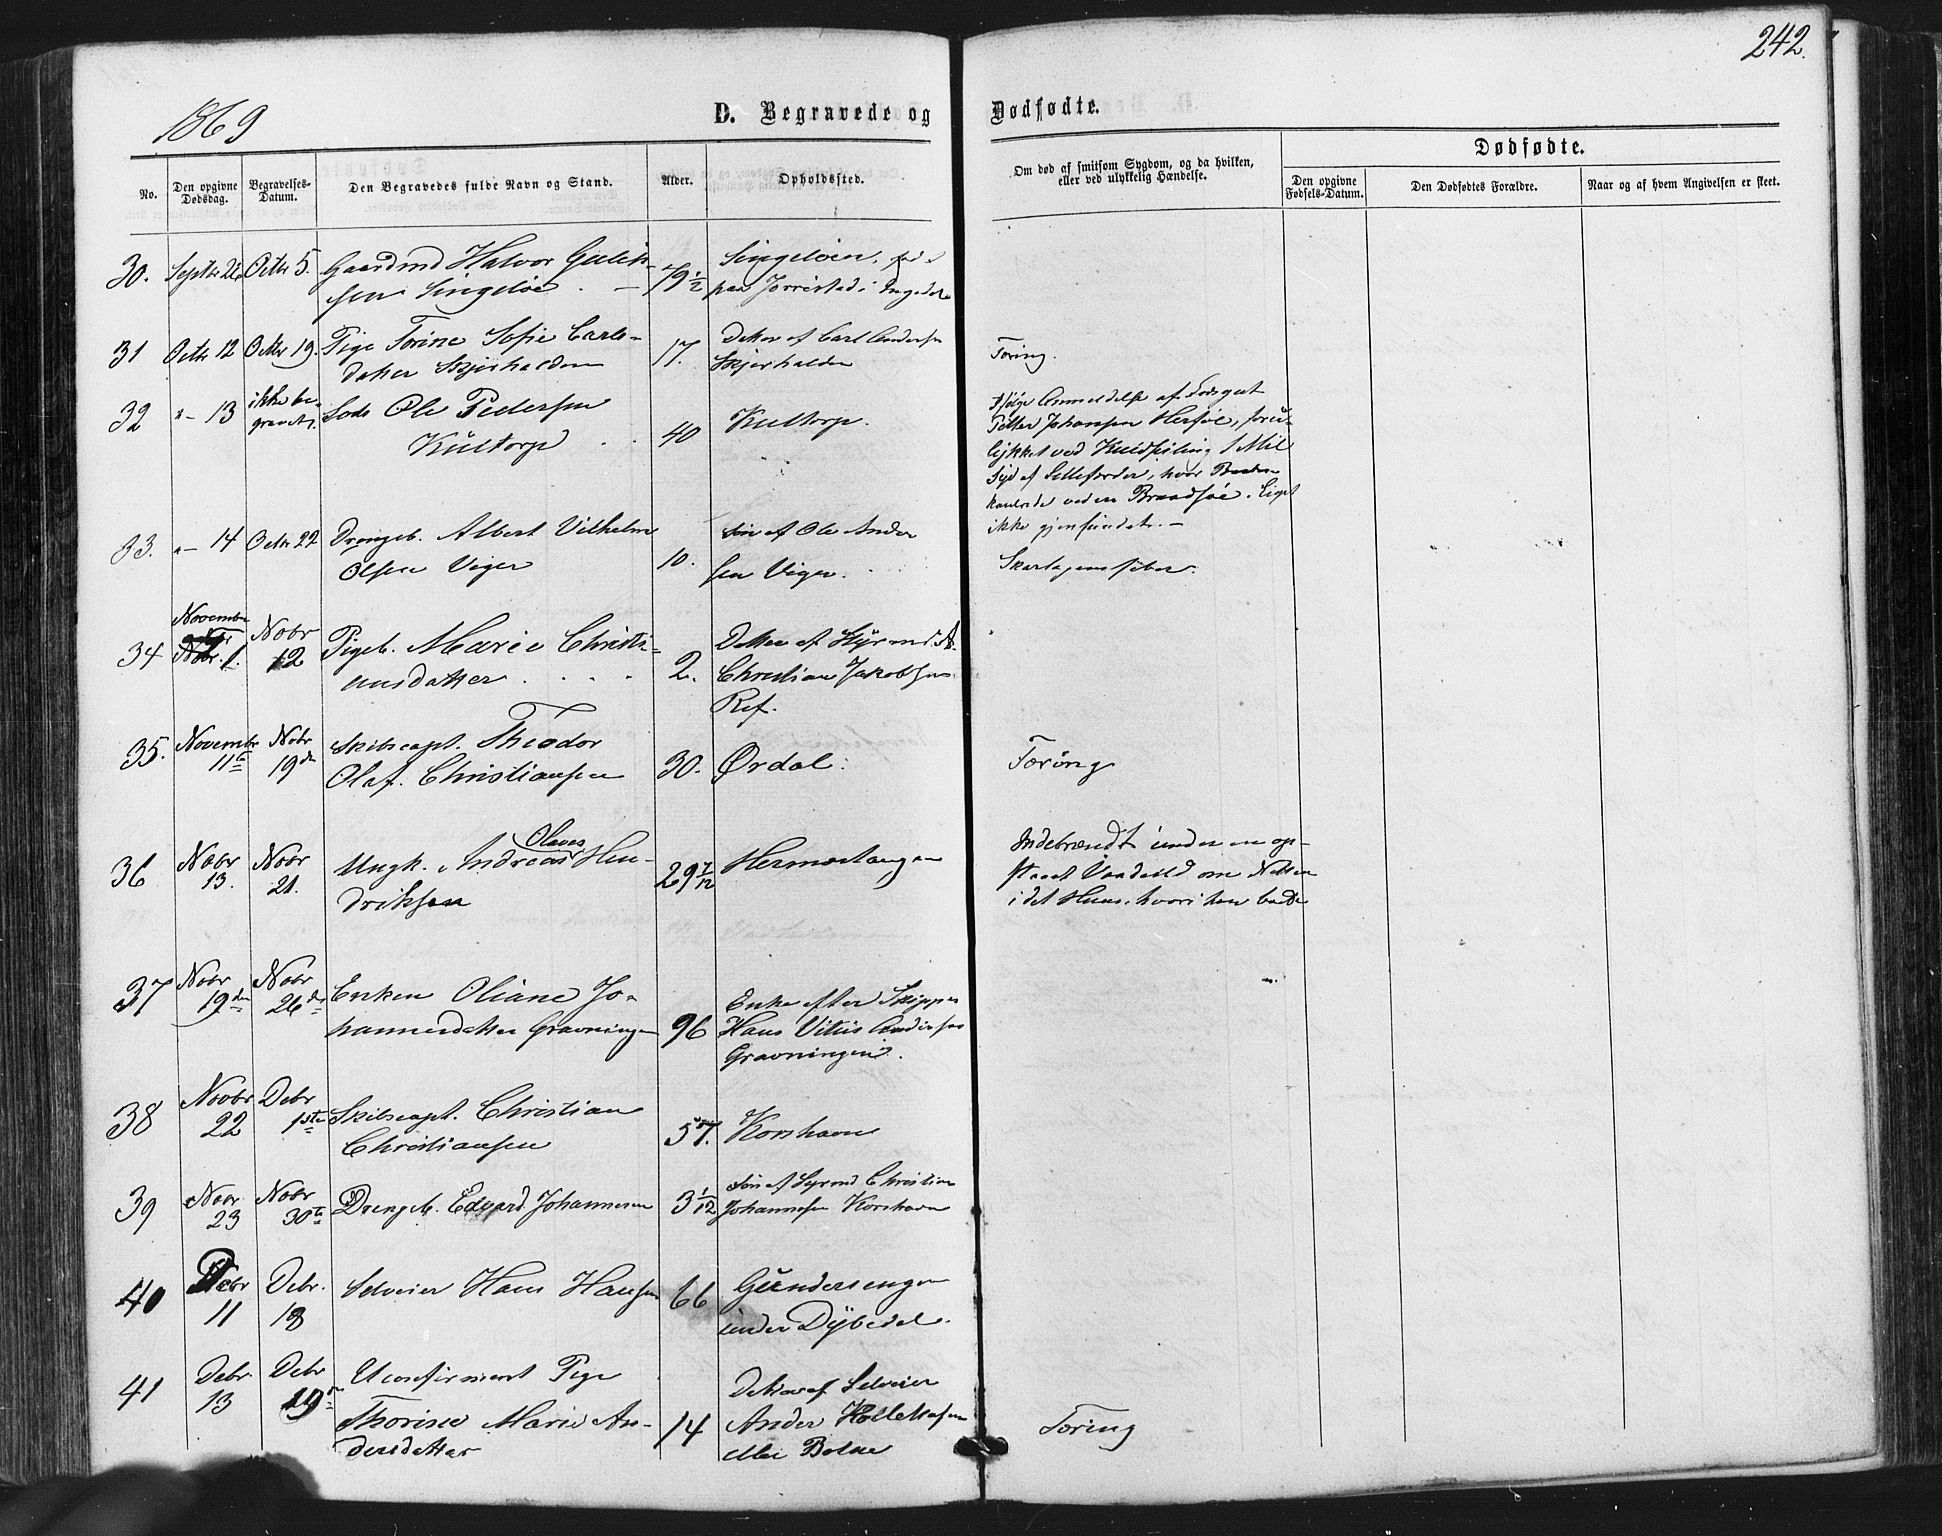 242.
1869
D. Begravede og Dødfødte.
No.
Den opgivne Dødsdag.
Begravelses-Datum.
Den Begravedes fulde Navn og Stand.
Alder.
Opholdssted.
Om død af smitsom Sygdom, og da hvilken,
eller ved ulykkelig Hændelse.
Dødfødte.
Den opgivne Fødsels-Datum.
Den Dødfødtes Forældre.
Naar og af hvem Angivelsen er skeet.
30. Septbr 26 Octbr 5. Gaardmd Halvor Gulik- 79 1/2 Singeløen,
sen Singeløe paa
31 Octbr 12 Octbr 19. Pige Torine Sofie Carls- 17. Datter af Carl Andersen
datter Skjærhalden Skjærhalden
Tæring.
32 "- 13 ikke be- Lods Ole Pedersen 40 Kultorp.
gravet. Kultorp
Ifølge Anmeldelse af Lodsgut
Petter Johansen Herføl, foru-
lykket ved 1 Mil
Syd af hvor Baaden
kantrede ved en Braadsøe. Liget
ikke gjenfundet. -
33. "- 14 Octbr 22 Drengeb. Albert Vilhelm 10. Søn af Ole Ander
Olsen Viger sen Viger.
Skarlagensfeber.
34 November Nobr
Nobr. 1. 12 Pigeb. Marie Christi- 2. Datter af Styrmd A.
ansdatter Christian Jakobsen
Røf.
35. Novembr 11te Nobr 19de Skibscapt. Theodor
Olaf Christiansen 30. Ørdal.
Tæring
36 Nobr 13. Nobr 21. Ungk. Andreas Olaves Hen-
driksen 29 7/12
Indebrændt under en op-
staaet Vaadeild om Natten
i det Huus, hvori han boede
37 Nobr 19de Nobr 26de Enken Oliane Jo-
hannesdatter Gravningen 96 Enke efter Skipper
Hans Vitus Andersen
Gravningen.
38 Novbr 22 Debr 1ste Skibscapt. Christian
Christiansen 57. Korshavn
39 Nobr 23 Nobr 30te Drengeb. Edvard Johannesen 3 1/12 Søn af Styrmd Christian
Johannesen Korshavn
40 Debr 11 Debr. 18 Selveier Hans Hansen 66 Gundersengen
under Dybedal.
41 Debr. 13 Debr 19de Uconfirmeret Pige
Thorine Marie An- 14 Datter af Selveier
dersdatter Anders
Bølne
Tæring